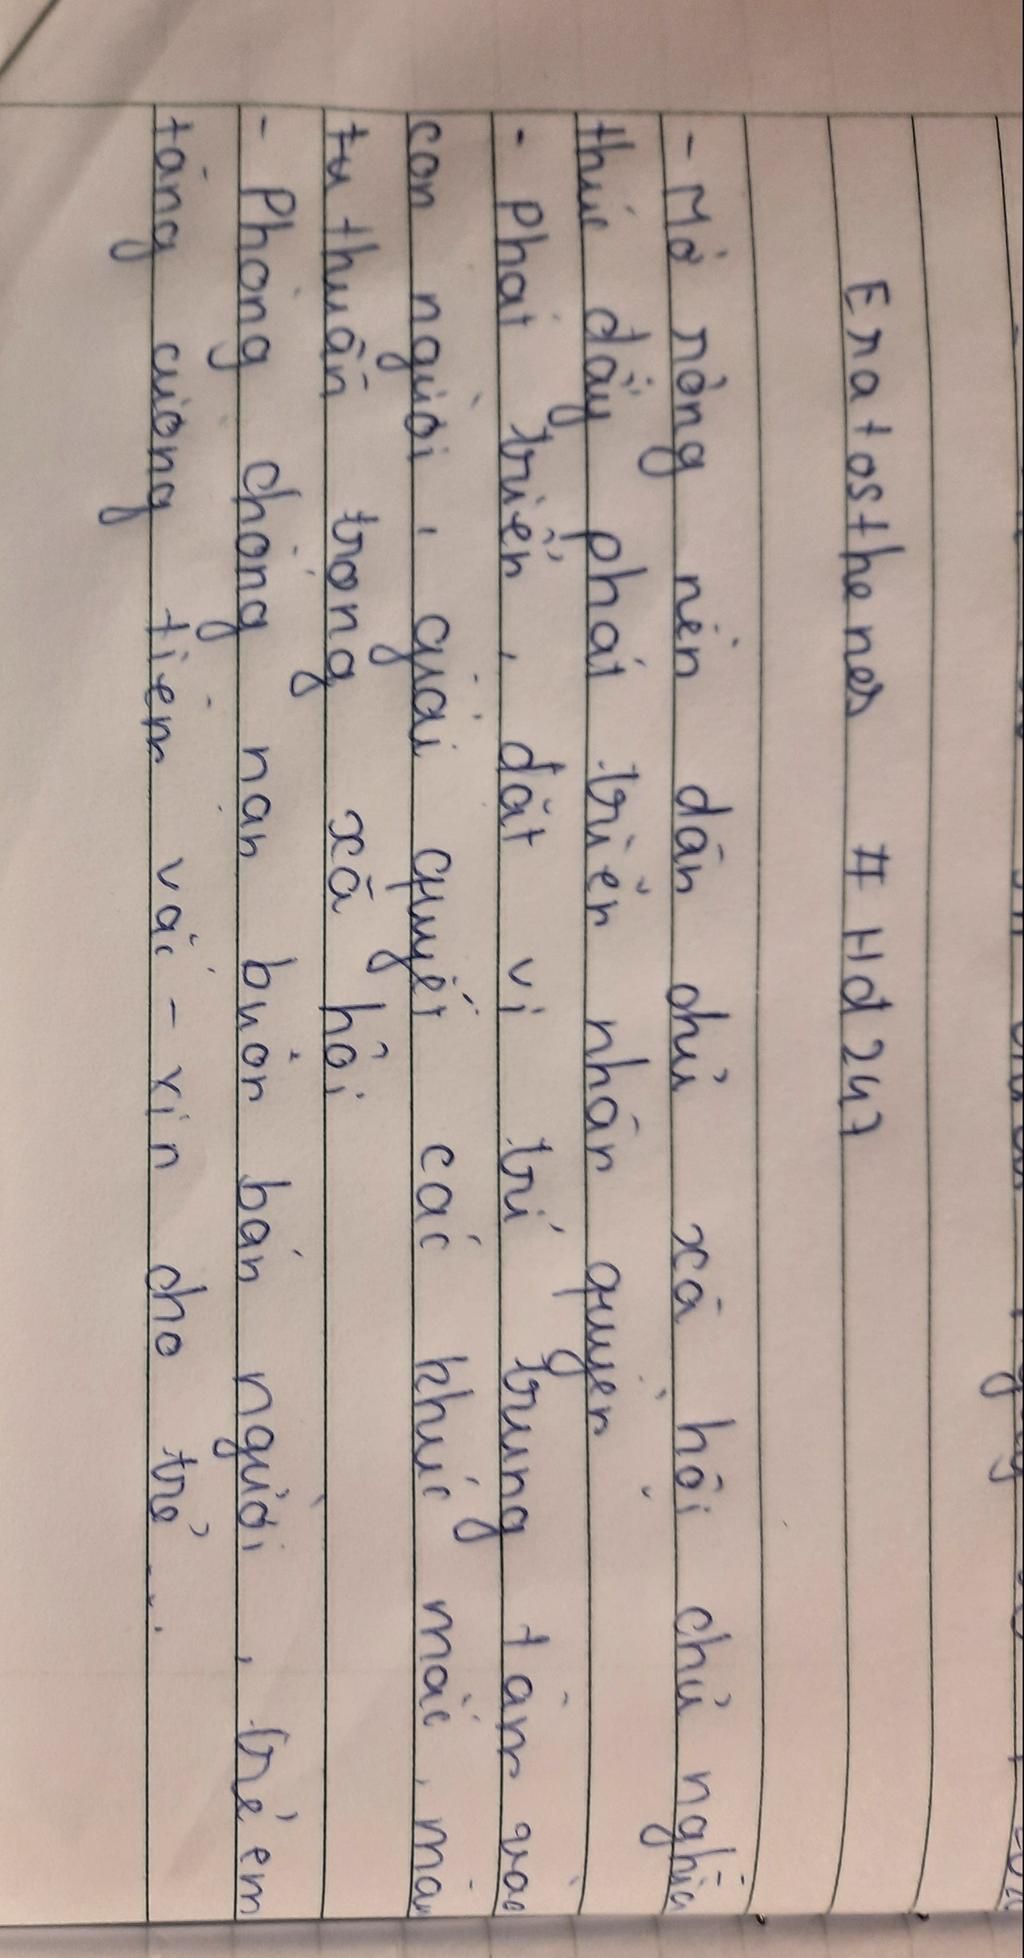 Eratosthenes # Hđ 247
- Mở rộng nền dân chủ xã hội chủ nghĩa
thúc đẩy phát triển nhân quyền
- Phát triển, đặt vị trí trung tâm vào
con người, giải quyết các khúc mắc, mâu
thuẫn trong xã hội
- Phòng chống nạn buôn bán người, trẻ em
tăng cường tiêm vắc-xin cho trẻ...